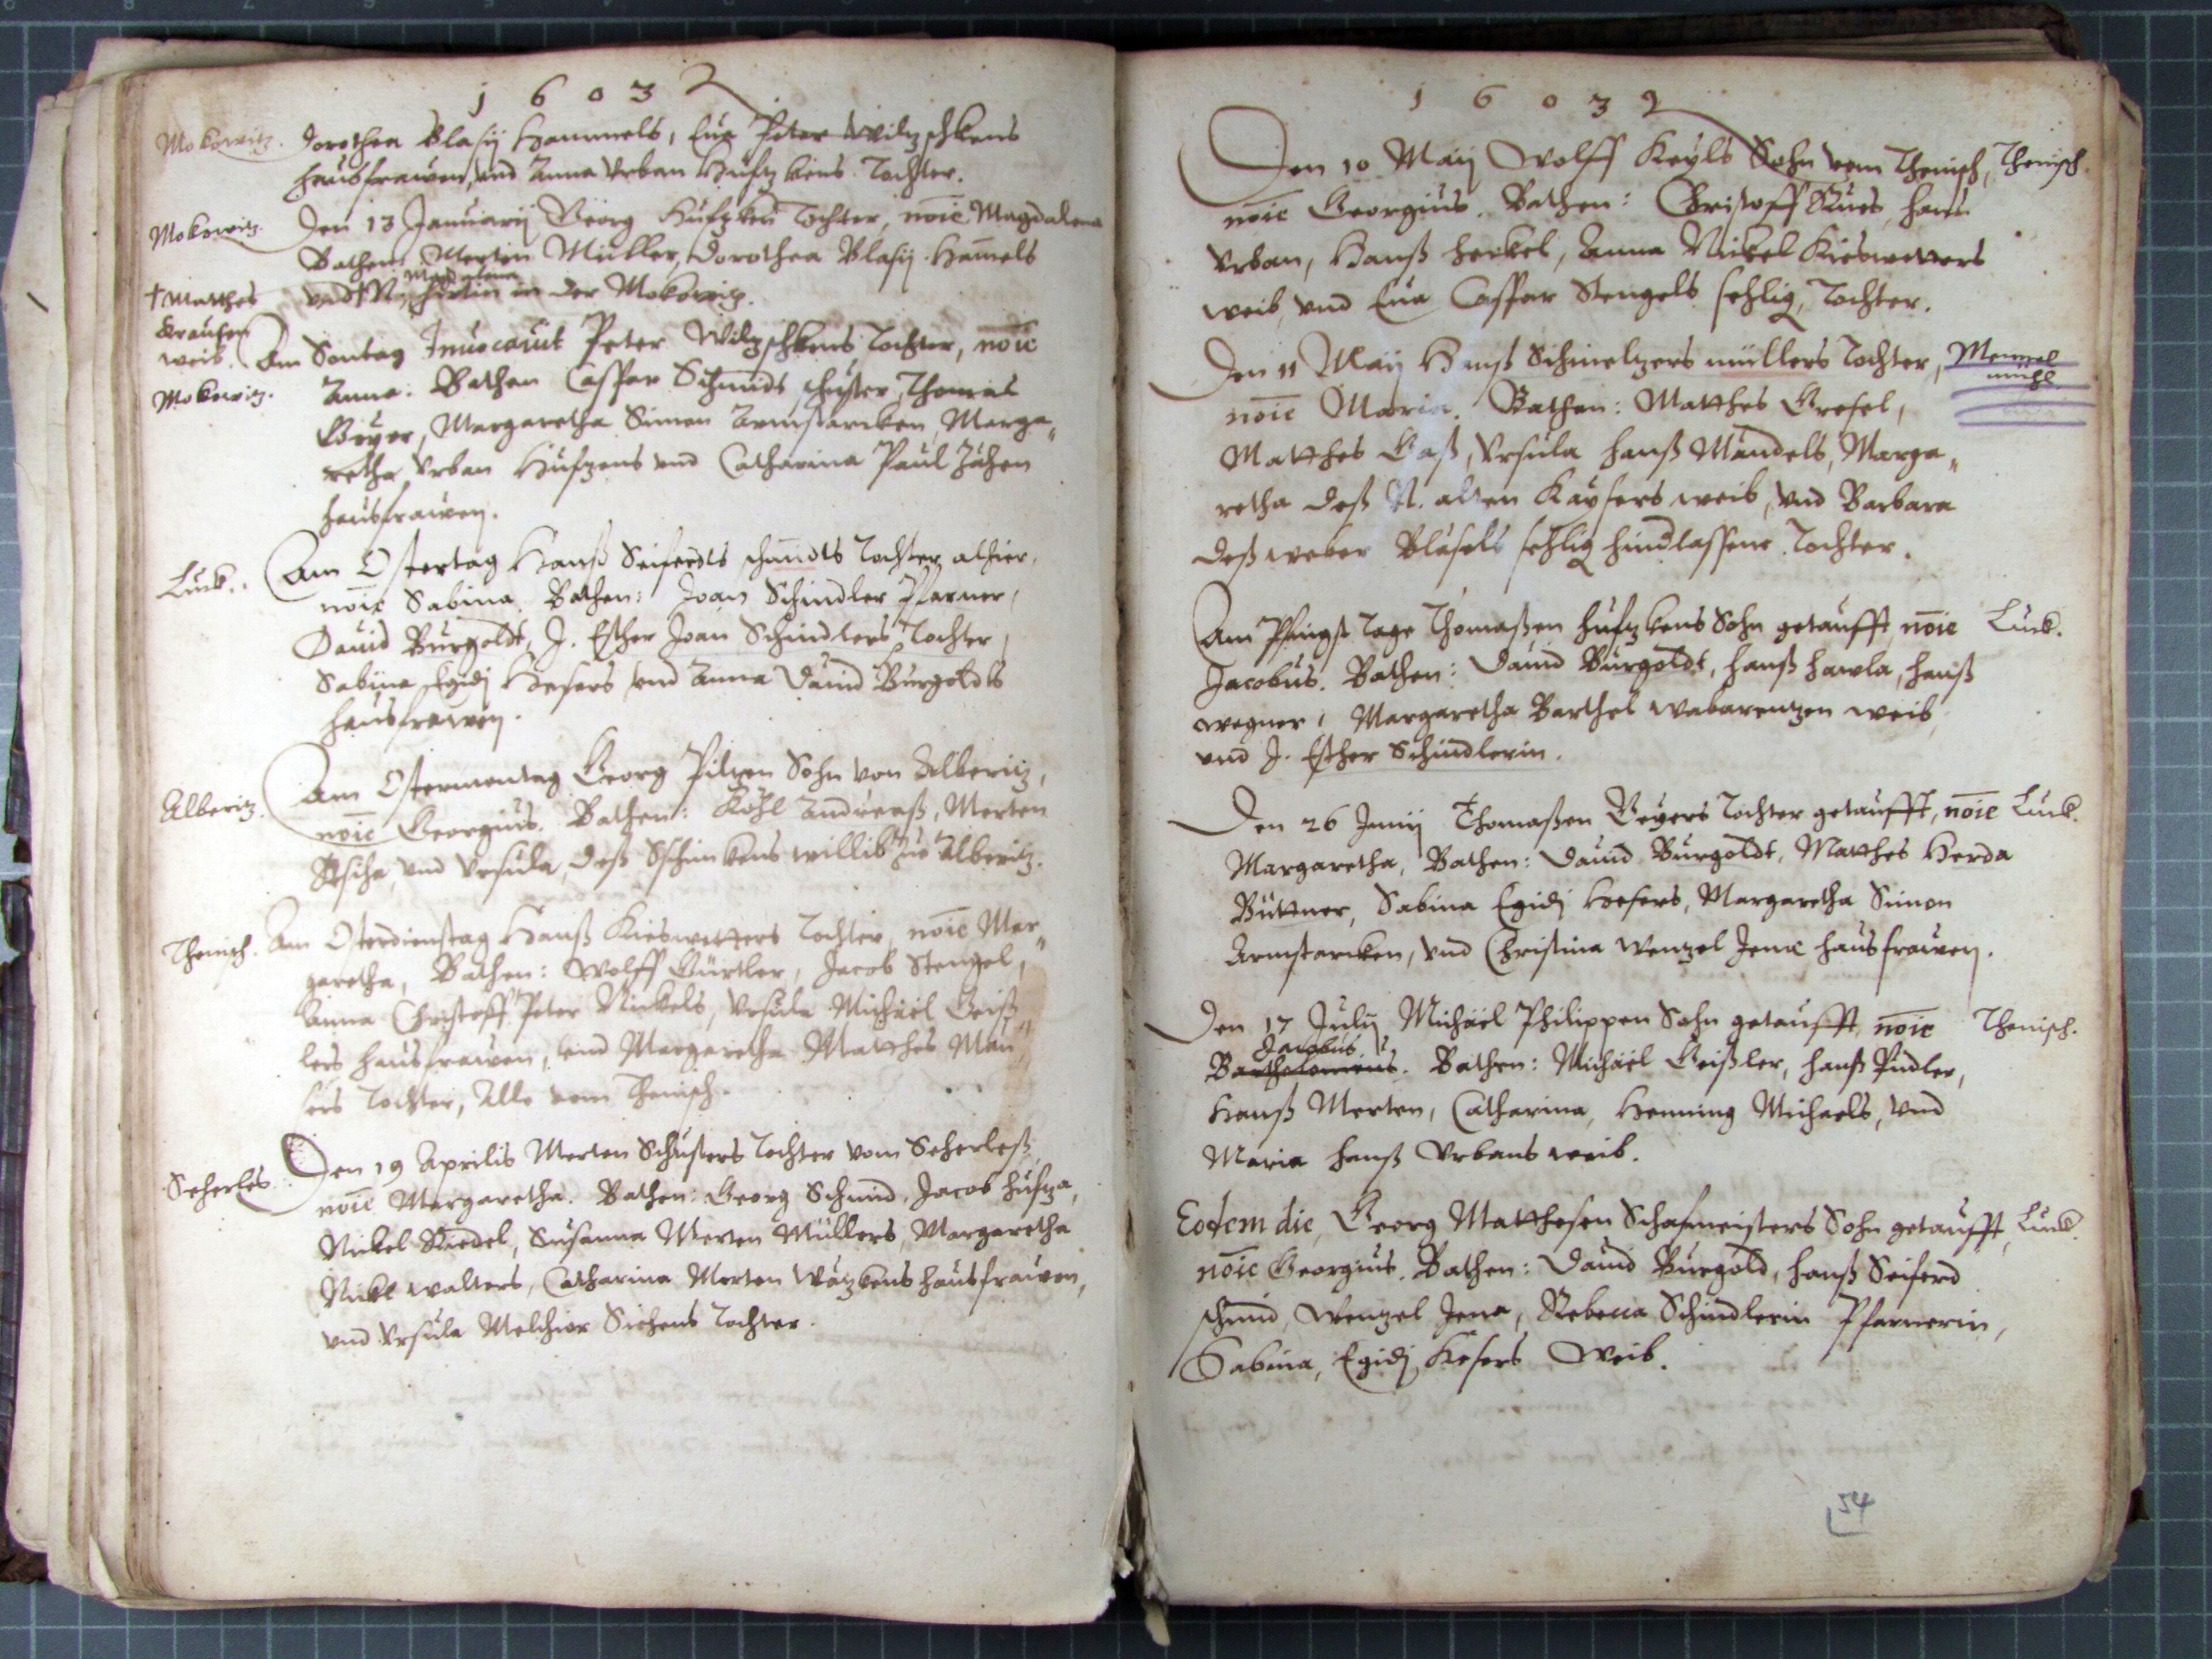 1603
Mokowitz. Dorothea Blasij Hammels, Eua Peter Wiltzschkens
hausfrawen, vnd Anna Vrban Hufzkens Tochter.
Mokowitz. Den 13 Januarij Georg Hufzken Tochter, noie Magdalena
Bathen: Merten Müller, Dorothea Blasij Hamels
Magdalena
† Matthes vnd † N. Hirtin in der Mokowitz.
Krausen
weib. Am Sontag Inuocauit Peter Wiltzschkens Tochter, noie
Mokowitz. Anna: Bathen Caspar Schmids schuster, Thomas
Geyer, Margaretha Simon Armstarcken, Marga„
retha Vrban Hufzens vnd Catharina Paul
hausfrawen.
Luck. Am Ostertag Hanß Seiferdts schmidts Tochter alhier,
noie Sabina. Bathen: Joan Schindler Pfarner,
Dauid Burgoldt, J. Esther Joan Schindlers Tochter,
Sabina Egidj Kesers vnd Anna Dauid Burgoldts
hausfrawen.
Alberitz. Am Ostermontag Georg Piltzen Sohn von Alberitz,
noie Georgius. Bathen: Köhl Andreaß, Merten
vnd Vrsula, deß zue Alberitz.
Thenisch. Am Osterdienstag Hanß Kieswetters Tochter, noie Mar„
garetha, Bathen: Wolff Gürtler, Jacob Stengel,
Anna Christoff Peter Nickels, Vrsula Michäel Geiß„
lers hausfrawen, vnd Margaretha Matthes Mau„
sers Tochter, Alle vom Thenisch.
Seherles. Den 19 Aprilis Merten Schusters Tochter vom Seherleß,
noie Margaretha. Bathen: Georg Schmid, Jacob Hufza,
Nickel Riedel, Susanna Merten Müllers, Margaretha
Nickel Walters, Catharina Merten Watzkens hausfrawen,
vnd Vrsula Melchior Sichens Tochter.
1603
Den 10 Maij Wolff Keyls Sohn vom Thenisch, Thenisch.
noie Georgius. Bathen: Christoff Kues, hans
Vrban, Hanß Heckel, Anna Nickel Kieswetters
weib, vnd Eua Caspar Stengels sehlig, Tochter.
Den 11 Maij Hanß Schmeltzers müllers Tochter, Memmel
mühl
noie Maria. Bathen: Matthes Gresel,
Matthes Gaß, Vrsula hanß Mändels, Marga„
retha deß N. alten Kaysers weib, vnd Barbara
deß weber Bläsels sehlig hindlassene Tochter.
Am Pfingst tage Thomaßen Hufzkens Sohn getaufft, noie Luck.
Jacobus. Bathen: Dauid Burgoldt, hanß Hawla, hanß
wegner, Margaretha Barthel Wabarentzen weib,
vnd J. Esther Schindlerin.
Den 26 Junij Thomaßen Geyers Tochter getaufft, noie Luck.
Margaretha, Bathen: Dauid Burgoldt, Matthes Herda
Büttner, Sabina Egidj Kesers, Margaretha Simon
Armstarcken, vnd Christina Wentzel Jena hausfrawen.
Den 17 Julij Michäel Philippen Sohn getaufft, noie Thenisch.
Jacobus
Bartholomeus. Bathen: Michäel Geißler, hanß Pudler,
Hanß Merten, Catharina, Henning Michaels, vnd
Maria hanß Vrbans weib.
Eodem die, Georg Matthesen Schafmeisters Sohn getaufft, Luck.
noie Georgius. Bathen: Dauid Burgold, hanß Seiferd
schmid, Wentzel Jena, Rebecca Schindlerin Pfarnerin,
Sabina, Egidj Kesers Weib.
54